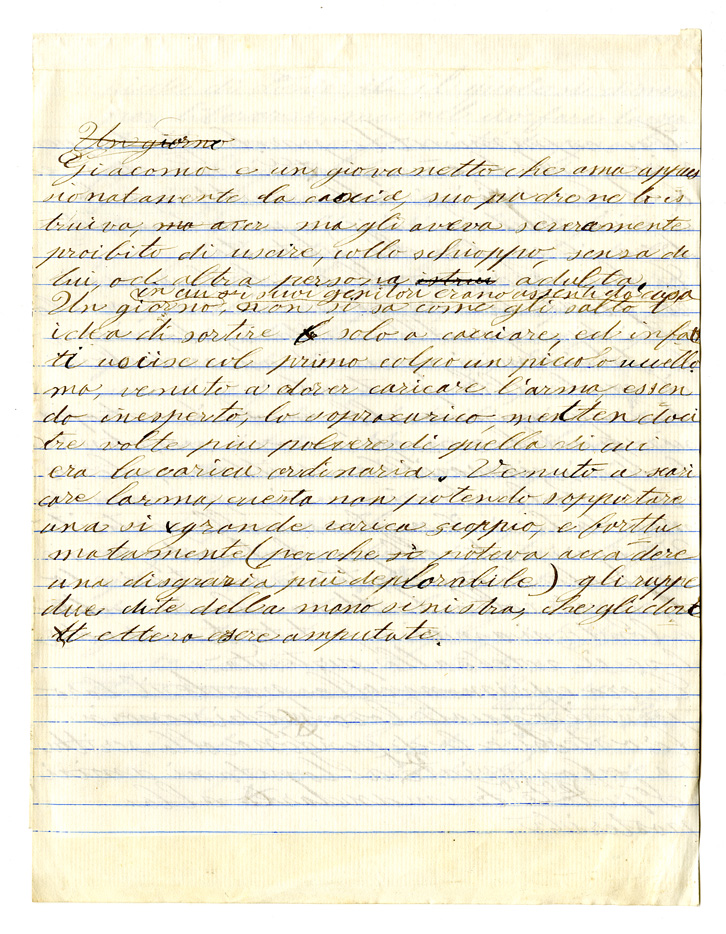 Un giorno
Giacomo e un giovanetto che ama appas
sionatamente la caccia, suo padre ne lo is
truiva, ma aver ma gli aveva severamente
proibito di uscire, collo schioppo, senza di
lui, od altra persona istrui adulta.
in cui i suoi genitori erano assenti da casa
Un giorno, non si sa come gli saltò l
idea di sortire solo a cacciare, ed infat
ti uccise col primo colpo un piccolo uccello
ma, venuto a dover caricare l'arma, essen
do inesperto, lo sopracarico, mettendoci
tre volte piu polvere di quella di cui
era la carica ordinaria. Venuto a scari
care larma, questa non potendo sopportare
una si grande carica scoppio, e fortu
natamente (perche si poteva accadere
una disgrazia piu deplorabile) gli ruppe
due dite della mano sinistra, che gli dov
ettero esere amputate.